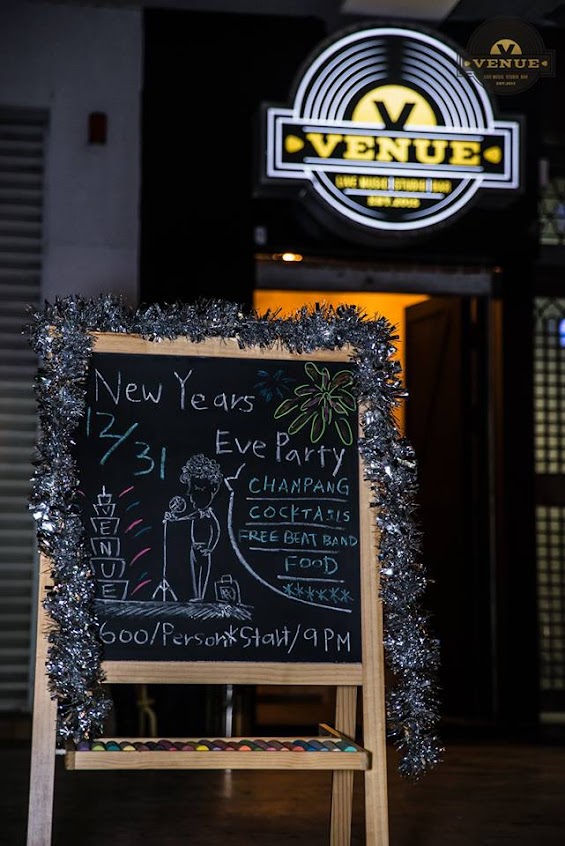 V
VENUE
LIVE MUSIC STUDIO BAR
V
VENUE
LIVE MUSIC STUDIO BAR
New Years
12/31
Eve Party
CHAMPANG
COCKTASIS
FREE BEAT BAND
FOOD
******
VENUE
600/Person*Start/9PM